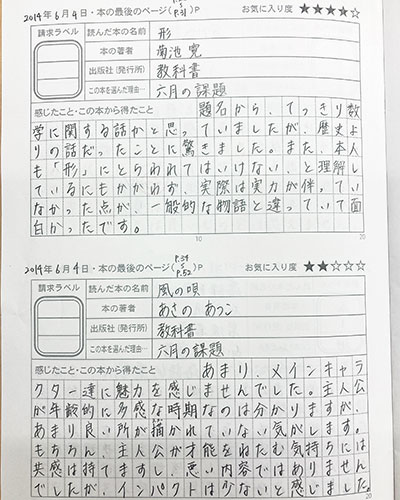 2014年6月4日・本の最後のページ(P.31)P お気に入り度 ★★★★☆
請求ラベル
読んだ本の名前 形
本の著者 菊池 寛
出版社(発行所) 教科書
この本を選んだ理由… 六月の課題
感じたこと・この本から得たこと 題名から、てっきり数
学に関する話かと思っていましたが、歴史よ
りの話だったことに驚きました。また、本人
も「形」にとらわれてはいけない、と理解し
ているにもかかわず、実際は実力が伴ってい
なかった点が、一般的な物語と違っていて面
白かったです。
10 20
2014年6月4日・本の最後のページ(P.34 S P.52)P お気に入り度 ★★☆☆☆
請求ラベル
読んだ本の名前 風の唄
本の著者 あさの あつこ
出版社(発行所) 教科書
この本を選んだ理由… 六月の課題
感じたこと・この本から得たこと あまり、メインキャラ
クター達に魅力を感じませんでした。主人公
が年齢的に多感な時期なのは分かりますが、
あまり良い所が描かれていない気がします。
もちろん、主人公が才能をねたむ気持ちには
共感は持てますし、悪い内容ではありません
でしたが、インパクトは少ないと感じました。
20